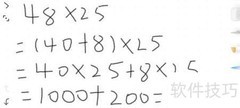 48×25
=(40+8)×25
=40×25+8×25
=1000+200=
软件技巧